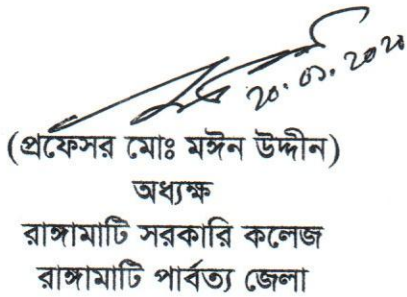 ২০.০১.২০২০
(প্রফেসর মোঃ মঈন উদ্দীন)
অধ্যক্ষ
রাঙ্গামাটি সরকারি কলেজ
রাঙ্গামাটি পার্বত্য জেলা